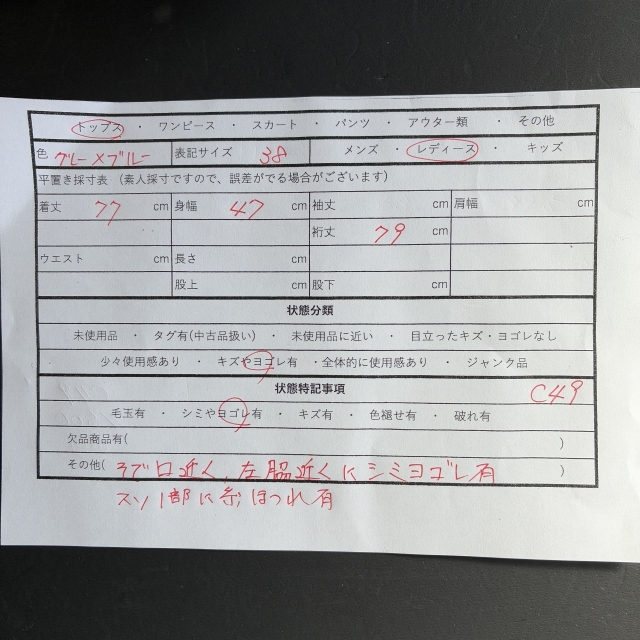 トップス ・ ワンピース ・ スカート ・ パンツ ・ アウター類 ・ その他
色 グレー×ブルー 表記サイズ 38 メンズ ・ レディース ・ キッズ
平置き採寸表 (素人採寸ですので、誤差がでる場合がございます)
着丈 77 cm 身幅 47 cm 袖丈 cm 肩幅 cm
裄丈 79 cm
ウエスト cm 長さ cm
股上 cm 股下 cm
状態分類
未使用品 ・ タグ有(中古品扱い) ・ 未使用品に近い ・ 目立ったキズ・ヨゴレなし
少々使用感あり ・ キズやヨゴレ有 ・全体的に使用感あり ・ ジャンク品
状態特記事項 C49
毛玉有 ・ シミやヨゴレ有 ・ キズ有 ・ 色褪せ有 ・ 破れ有
欠品商品有( )
その他( そで口近く、左脇近くにシミヨゴレ有 )
スソ1部に糸ほつれ有